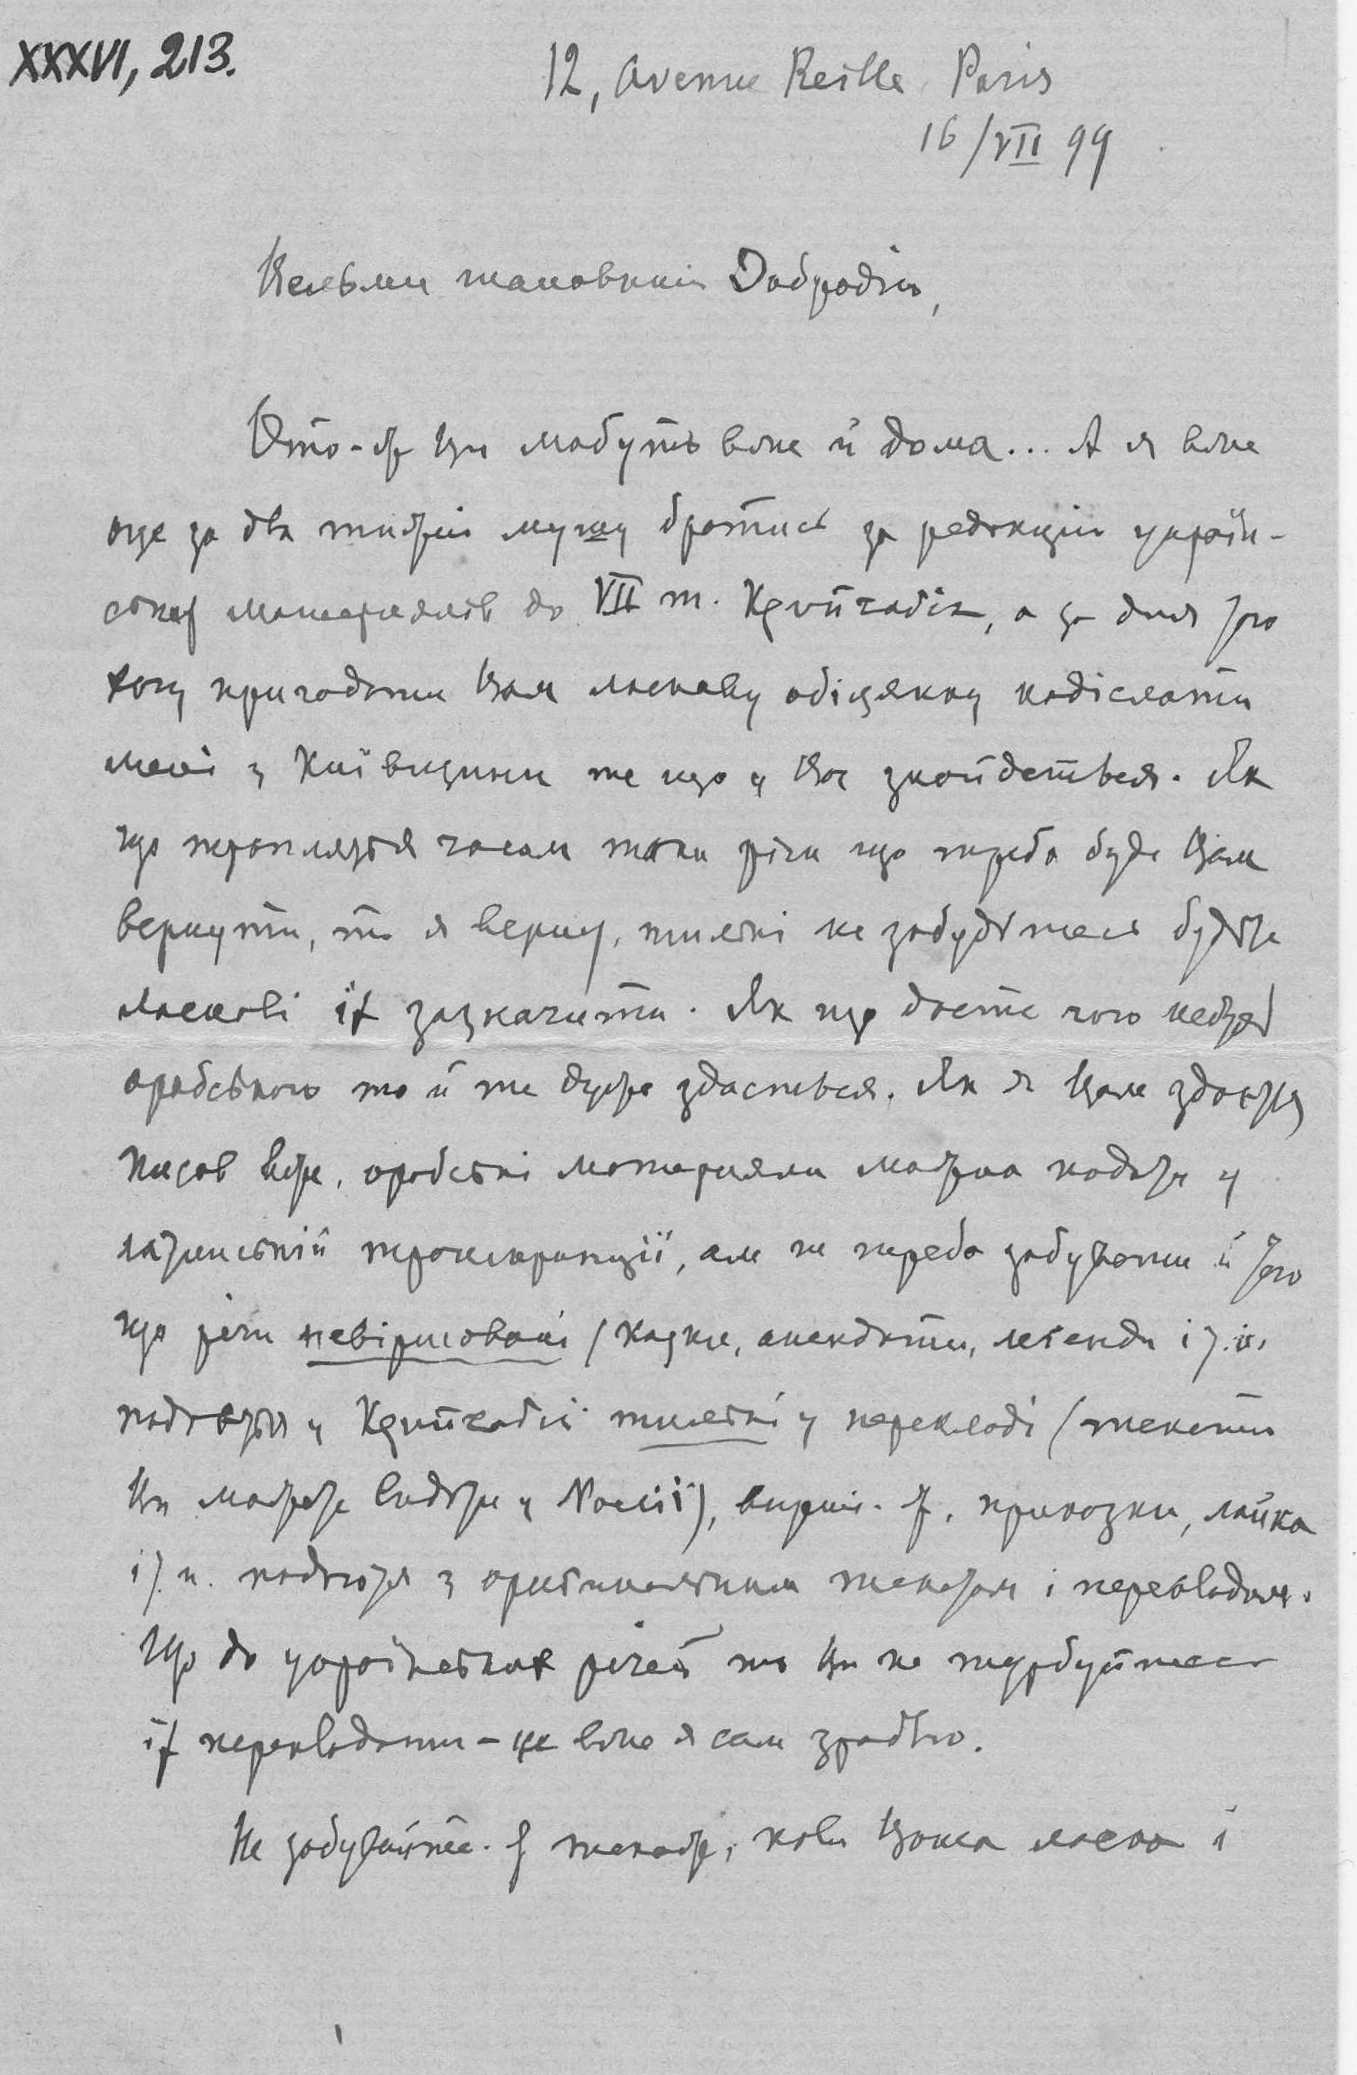 XXXVI, 213.
12, Avenue Reille Paris
16/VII 99
Вельми шановний Добродію,
Ото-ж Ви мабуть вже й дома... А я вже
оце за два тижні мушу братись за редакцію україн-
ських матерялів до VII т. Криптадіів, а за для того
хочу пригадати Вам ласкаву обіцянку надіслати
мені з Київщини те що у Вас знайдеться. Як
що трапляться часом таки річи що треба буде Вам
вернути, то я верну, тилькі не забудьтеся будьте
ласкові їх зазначити. Як що дасте чого небудь
арабського то й те дуже здасться. Як я Вам здається
писав вже, арабські матеряли можна подати у
латинській транскрипції, але не треба забувати й того
що річи невіршовані (казки, анекдоти, легенди і т. и.
подаються у Криптадії тилькі у перекладі (тексти
Ви можете видати у Росії), вірші ж, приказки, лайка
і т. и. подаються з оригинальним текстом і перекладом.
Що до українських річей то Ви не турбуйтесь
їх перекладати – це вже я сам зроблю.
Не забувайте ж также, коли Ваша ласка і